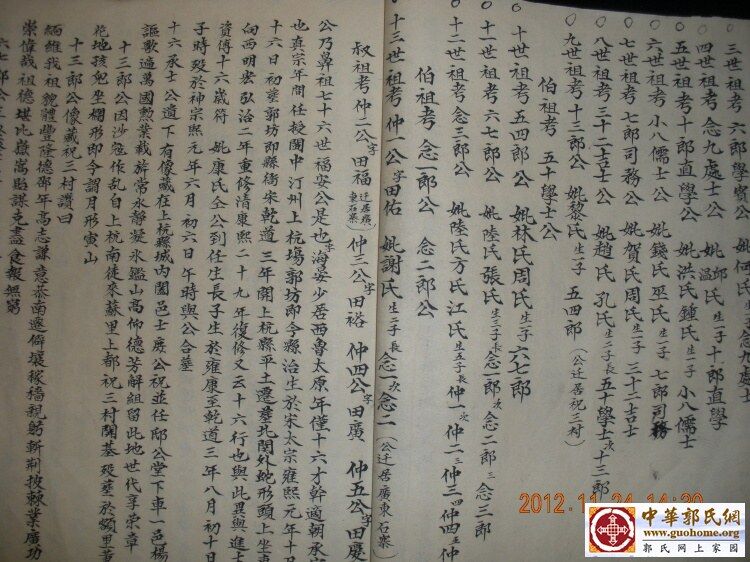 三世祖考 六郎學賓公 妣何氏
四世祖考 念九處士公 妣邱氏溫氏 生一子 十郎直學
五世祖考 十郎直學公 妣洪氏鍾氏 生一子 小八儒士
六世祖考 小八儒士公 妣錢氏巫氏 生一子 七郎司務
七世祖考 七郎司務公 妣賀氏周氏 生一子 三十二吉士
八世祖考 三十二吉士公 妣趙氏孔氏 生二子長 五十學士 次 十三郎
九世祖考 十三郎公 妣黎氏 生一子 五四郎 (公迁居祝三村)
伯祖考 五十學士公
十世祖考 五四郎公 妣林氏周氏 生一子 六七郎
十一世祖考 六七郎公 妣陸氏張氏 生三子長 念一郎 次 念二郎 三 念三郎
十二世祖考 念三郎公 妣陸氏方氏江氏 生五子長 仲一 次 仲二 三 仲三 四 仲四 五 仲
伯祖考 念一郎公 念二郎公
十三世祖考 仲一公 字 田佑 妣謝氏 生二子長 念一 次 念二 (公迁居廣東石寨)
叔祖考 仲二公 字 田福 (迁居廣東石寨) 仲三公 字 田裕 仲四公 字 田廣 仲五公 字 田慶
公乃鼻祖七十六世福安公是也 字海晏少居西魯太原年僅十六才幹適朝承
也真宗年間任授閩中汀州上杭場郭坊即今縣治生於宋太宗雍熙元年十月
十六日初葬郭坊即縣衙宋乾道三年開上杭縣平土遷葬北門外蛇形頭上坐東
向西明宏弘治二年重修清康熙二十九年復修又云十六行也與此異與進士
資傅十六歲符 妣康氏全公到任生長子生於雍康至乾道三年八月初十日
子時殁於神宗熙元年六月初六日午時與公合葬
十六承士公遺下有像藏在上杭縣城内圖邑士庶公祝並任邸公堂下車一邑楊
謳歌遍萬國勲業裁旂常永靜凝氷鑑山高仰德芳解組留此地世代享崇章
十三郎公因沙寇作乱自上杭南徒來蘇里上都祝三村開基殁葬於瀨里黃
花地孩兒坐欄形即今謂月形寅山
十三郎公像藏祝三村讚曰
緬維我祖貌體豐隆德邵年高志謙意恭南遷僻壤稼穡親躬斬荆披棘業廣功
崇偉哉祖德堪比嶽嵩貽謀克盡食報無第
2012.11.24 14:20
中華郭氏網
www.guohome.org
郭氏网上家园